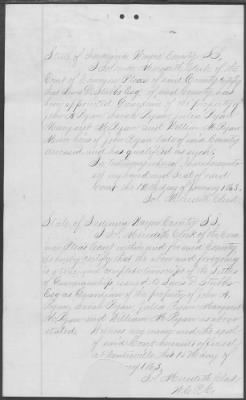 State of Indiana Wayne County SS,
I Sol Meredith Clerk of the
Court of Common Pleas of said County certify
that Lewis D. Stubbs Esq of said County has
been appointed Guardian of the property of
John A Ryan Sarah Ryan Julia Ryan
Margaret M. Ryan and William H. Ryan
Minor heirs of John Ryan late of said County
deceased and has qualified as such
In testimony whereof
my hand and Seal of said
Court the 15th day of January 1863,
Sol Meredith Clerk
State of Indiana Wayne County SS.
I Sol Meredith Clerk of the Com
mon Pleas Court within and for said County
do hereby certify that the above and foregoing
is a true and complete transcript of the Letters
of Guardianship issued to Lewis D. Stubbs
Esq as Guardian of the property of John A.
Ryan Sarah Ryan Julia Ryan Margaret
M. Ryan and William H. Ryan as above
stated. Witness my name and the seal
of said Court hereunto affixed
at Centerville this 15th day of
1863,
Sol Meredith Clerk